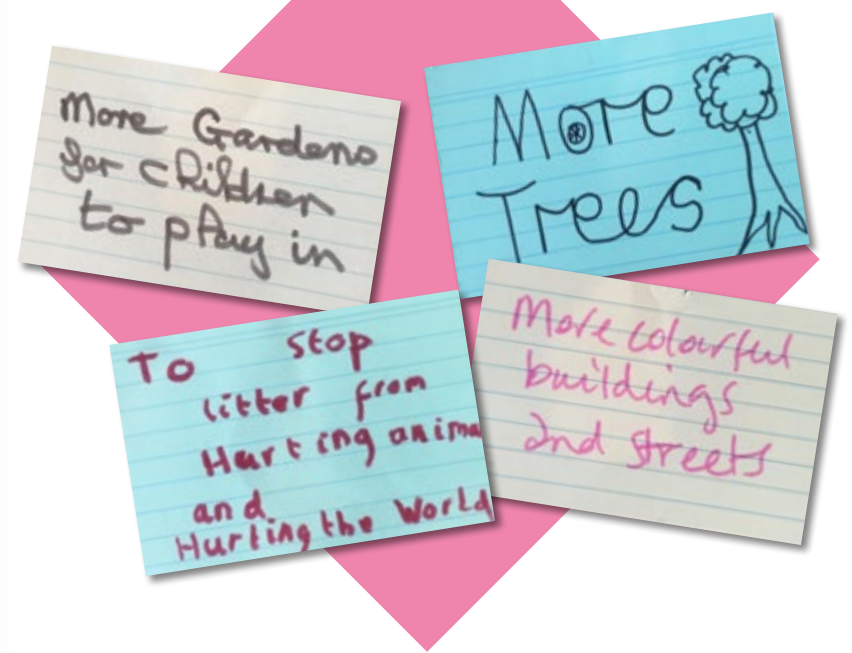 More Gardens
for children
to play in
More
Trees
To stop
litter from
Hurting anima
and
Hurting the World
More colourful
buildings
and streets